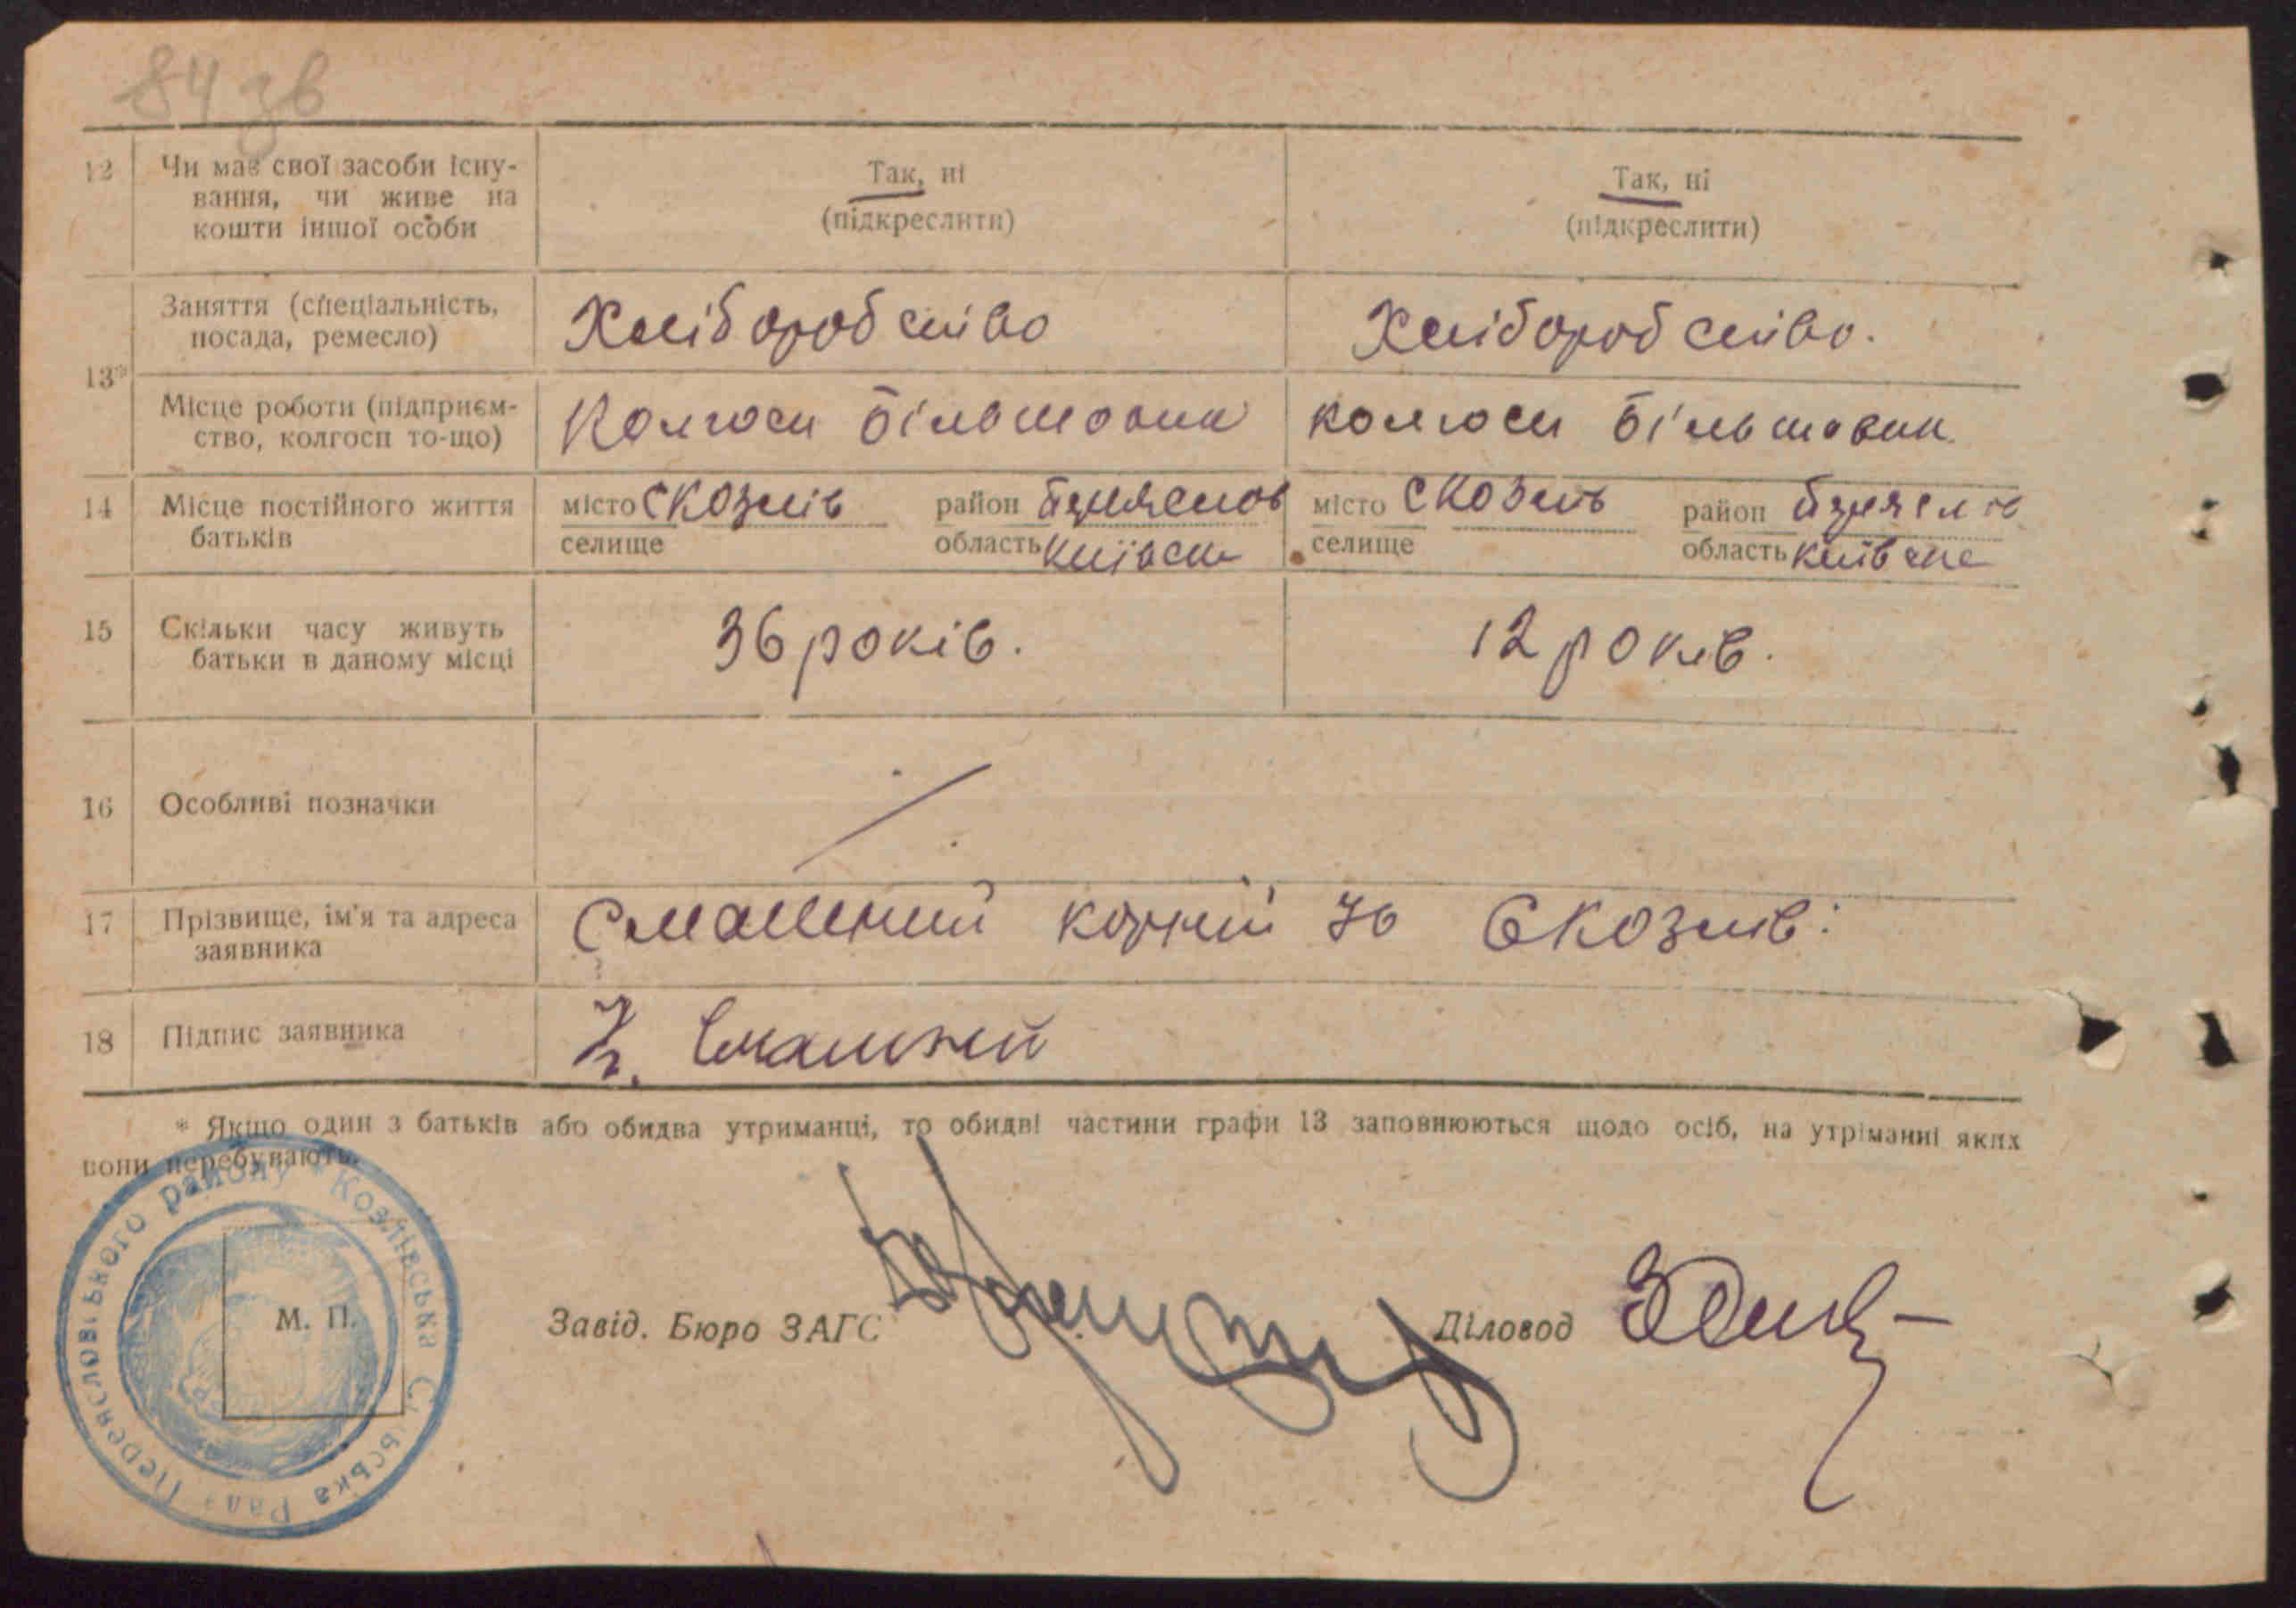 84 зв
12 Чи має свої засоби існу-
вання, чи живе на
кошти іншої особи
Так, ні
(підкреслити)
Так, ні
(підкреслити)
13*
Заняття (спеціальність,
посада, ремесло)
Хліборобство
Хліборобство.
Місце роботи (підприєм-
ство, колгосп то-що)
Колгосп більшовик
колгосп більшовик
14 Місце постійного життя
батьків
місто с Козлів район
селище область Київськ
місто с Козлів район
селище область Київське
15 Скільки часу живуть
батьки в даному місці
36 років.
12 років.
16 Особливі позначки
17 Прізвище, ім'я та адреса
заявника
Смашний Корній с Козлів
18 Підпис заявника
Смашний
* Якщо один з батьків або обидва утриманці, то обидві частини графи 13 заповнюються щодо осіб, на утріманні яких
вони перебувають.
Козлівська Сільська Рада Переяславського району
М. П.
Завід. Бюро ЗАГС
Діловод